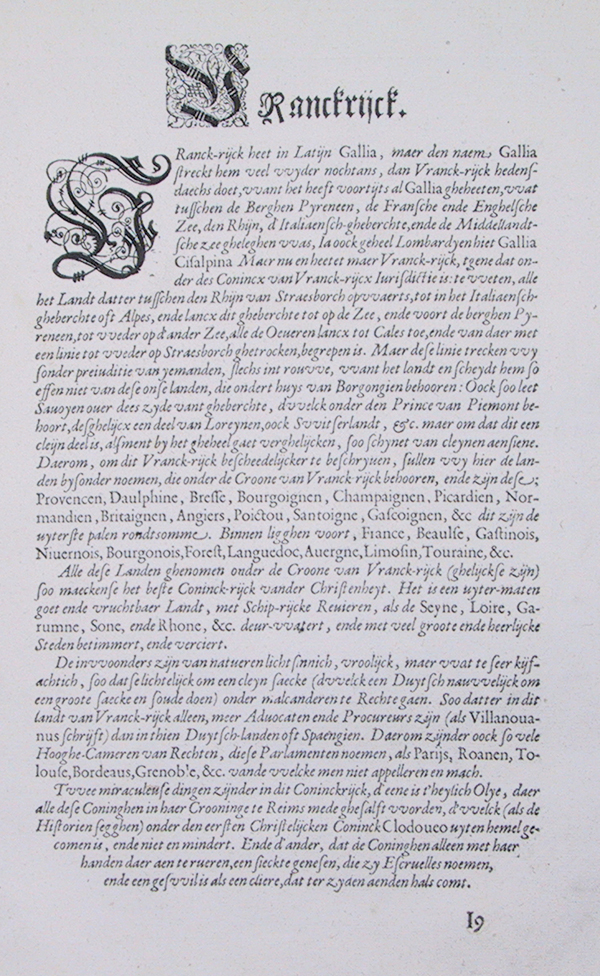 VRanckrijck.
VRanck-rijck heet in Latijn Gallia, maer den naem Gallia
ſtreckt hem veel vvyder nochtans, dan Vranck-rijck hedenſ-
daechs doet, vvant het heeft voortijts al Gallia gheheeten, vvat
tuſſchen de Berghen Pyreneen, de Franſche ende Engheliſche
Zee, den Rhijn, d'Italiaenſch-gheberchte, ende de Middellandt-
ſche zee gheleghen vvas, Ia oock geheel Lombardyen hiet Gallia
Ciſalpina Maer nu en heetet maer Vranck-rijck, tgene dat on-
der des Conincx van Vranck-rijcx Iuriſdictie is: te vveten, alle
het Landt datter tuſſchen den Rhijn van Straesborch opvvaerts, tot in het Italiaenſch-
gheberchte oft Alpes, ende lancx dit gheberchte tot op de Zee, ende voort de berghen Py-
reneen, tot vveder op d'ander Zee, alle de Oeueren lancx tot Cales toe, ende van daer met
een linie tot vveder op Straesborch ghetrocken, begrepen is. Maer deſe linie trecken vvy
ſonder preiuditie van yemanden, ſlechs int rouvve, vvant het landt en ſcheydt hem ſo
effen niet van deſe onſe landen, die ondert huys van Borgongien behooren: Oock ſoo leet
Sauoyen ouer dees zyde vant gheberchte, dvvelck onder den Prince van Piemont be-
hoort, deſghelijcx een deel van Loreynen, oock Svvitſerlandt, &c. maer om dat dit een
cleijn deel is, alſment by het geheel gaet verghelijcken, ſoo ſchynet van cleynen aenſiene.
Daerom, om dit Vranck-rijck beſcheedelijcker te beſchryuen, ſullen vvy hier de lan-
den byſonder noemen, die onder de Croone van Vranck-rijck behooren, ende zijn deſe;
Provencen, Daulphine, Breſſe, Bourgoignen, Champaignen, Picardien, Nor-
mandien, Britaignen, Angiers, Poictou, Santoigne, Gaſcoignen, &c dit zijn de
uyterſte palen rondtsomme. Binnen ligghen voort, France, Beaulſe, Gaſtinois,
Niuernois, Bourgonois, Foreſt, Languedoc, Auergne, Limoſin, Touraine, &c.
Alle deſe Landen ghenomen onder de Croone van Vranck-rijck (ghelijckſe zijn)
ſoo maeckenſe het beſte Coninck-rijck vander Chriſtenheyt. Het is een uyter-maten
goet ende vruchtbaer Landt, met Schip-rijcke Reuieren, als de Seyne, Loire, Ga-
rumne, Sone, ende Rhone, &c. deur-vvatert, ende met veel groote ende heerlijcke
Steden betimmert, ende verciert.
De invvoonders zijn van natueren licht ſinnich, vroolijck, maer vvat te ſeer kijf-
achtich, ſoo datſe lichtelijck om een cleyn ſaecke (dvvelck een Duytſch nauvvelijck om
een groote ſaecke en ſoude doen) onder malcanderen te Rechte gaen. Soo datter in dit
landt van Vranck-rijck alleen, meer Aduocaten ende Procureurs zijn (als Villanoua-
nus ſchrijft) dan in thien Duytſch-landen oft Spaengien. Daerom zijnder oock ſo vele
Hooghe-Cameren van Rechten, dieſe Parlamenten noemen, als Parijs, Roanen, To-
louſe, Bordeaus, Grenoble, &c. vande vvelcke men niet appelleren en mach.
Tvvee miraculeuſe dingen zijnder in dit Coninckrijck, d'eene is t'heylich Olye, daer
alle deſe Coninghen in haer Crooninge te Reims mede gheſalft vvorden, d'vvelck (als de
Hiſtorien ſegghen) onder den eerſten Chriſtelijcken Coninck Clodouco uyten hemel ge-
comen is, ende niet en mindert. Ende d'ander, dat de Coninghen alleen met haer
handen daer aen te rueren, een ſieckte geneſen, die zy Eſcruelles noemen,
ende een geſvvil is als een cliere, dat ter zyden aenden hals comt.
19